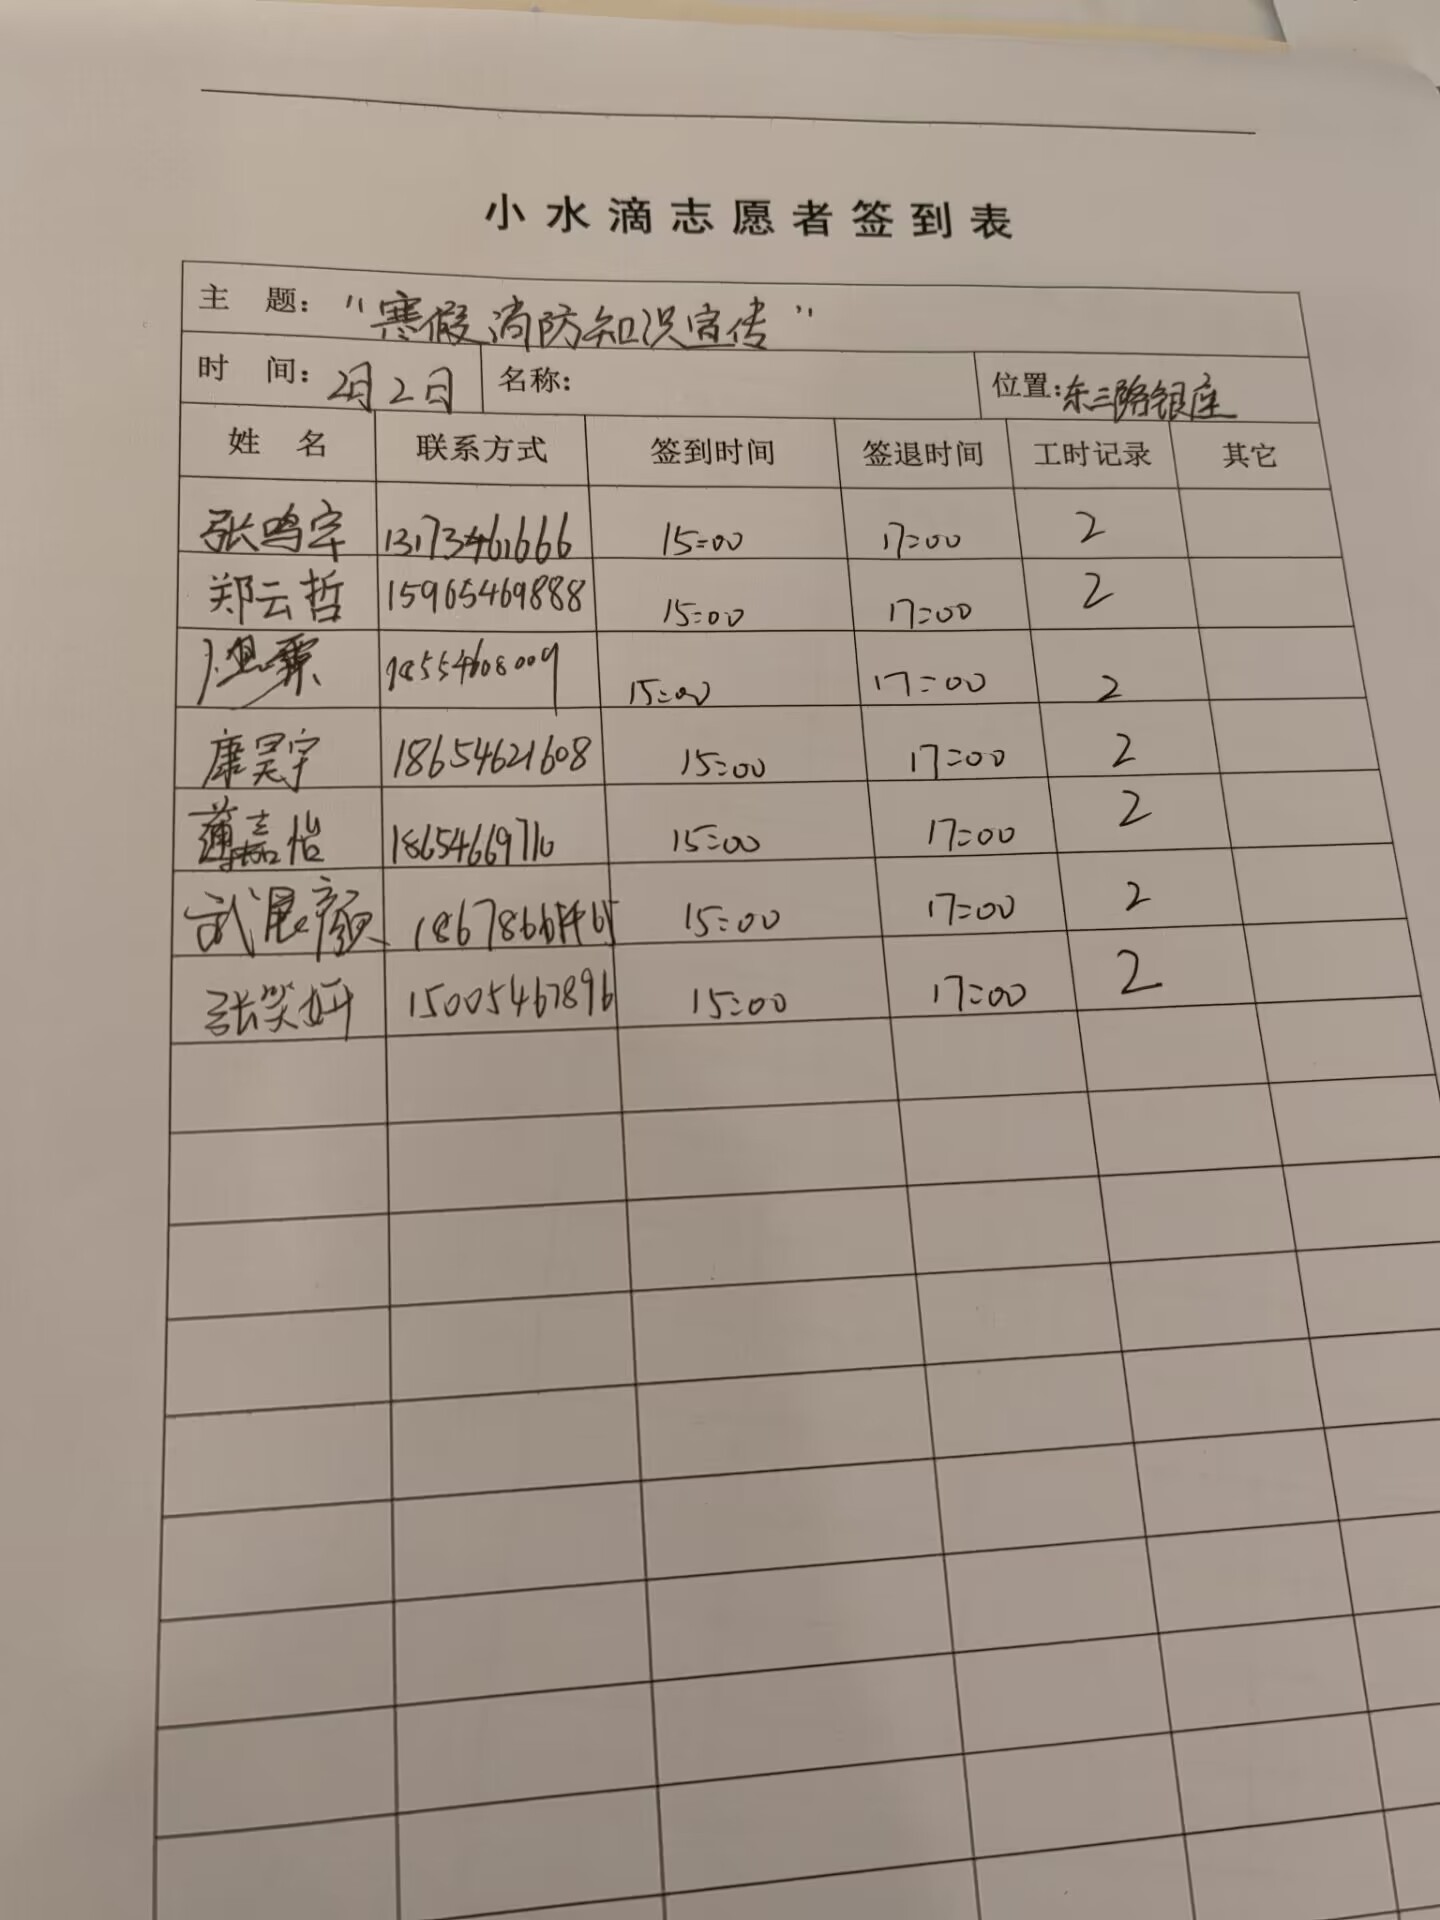 小水滴志愿者签到表
主 题：“寒假消防知识宣传”
时 间：2月2日 名称： 位置：东三路银座
姓 名 联系方式 签到时间 签退时间 工时记录 其它
张鸣宇 15:00 17:00 2
郑云哲 15965469888 15:00 17:00 2
18554608009 15:00 17:00 2
康昊宇 18654621608 15:00 17:00 2
薄嘉怡 18654669710 15:00 17:00 2
武展颜 15:00 17:00 2
张笑妍 15005467896 15:00 17:00 2